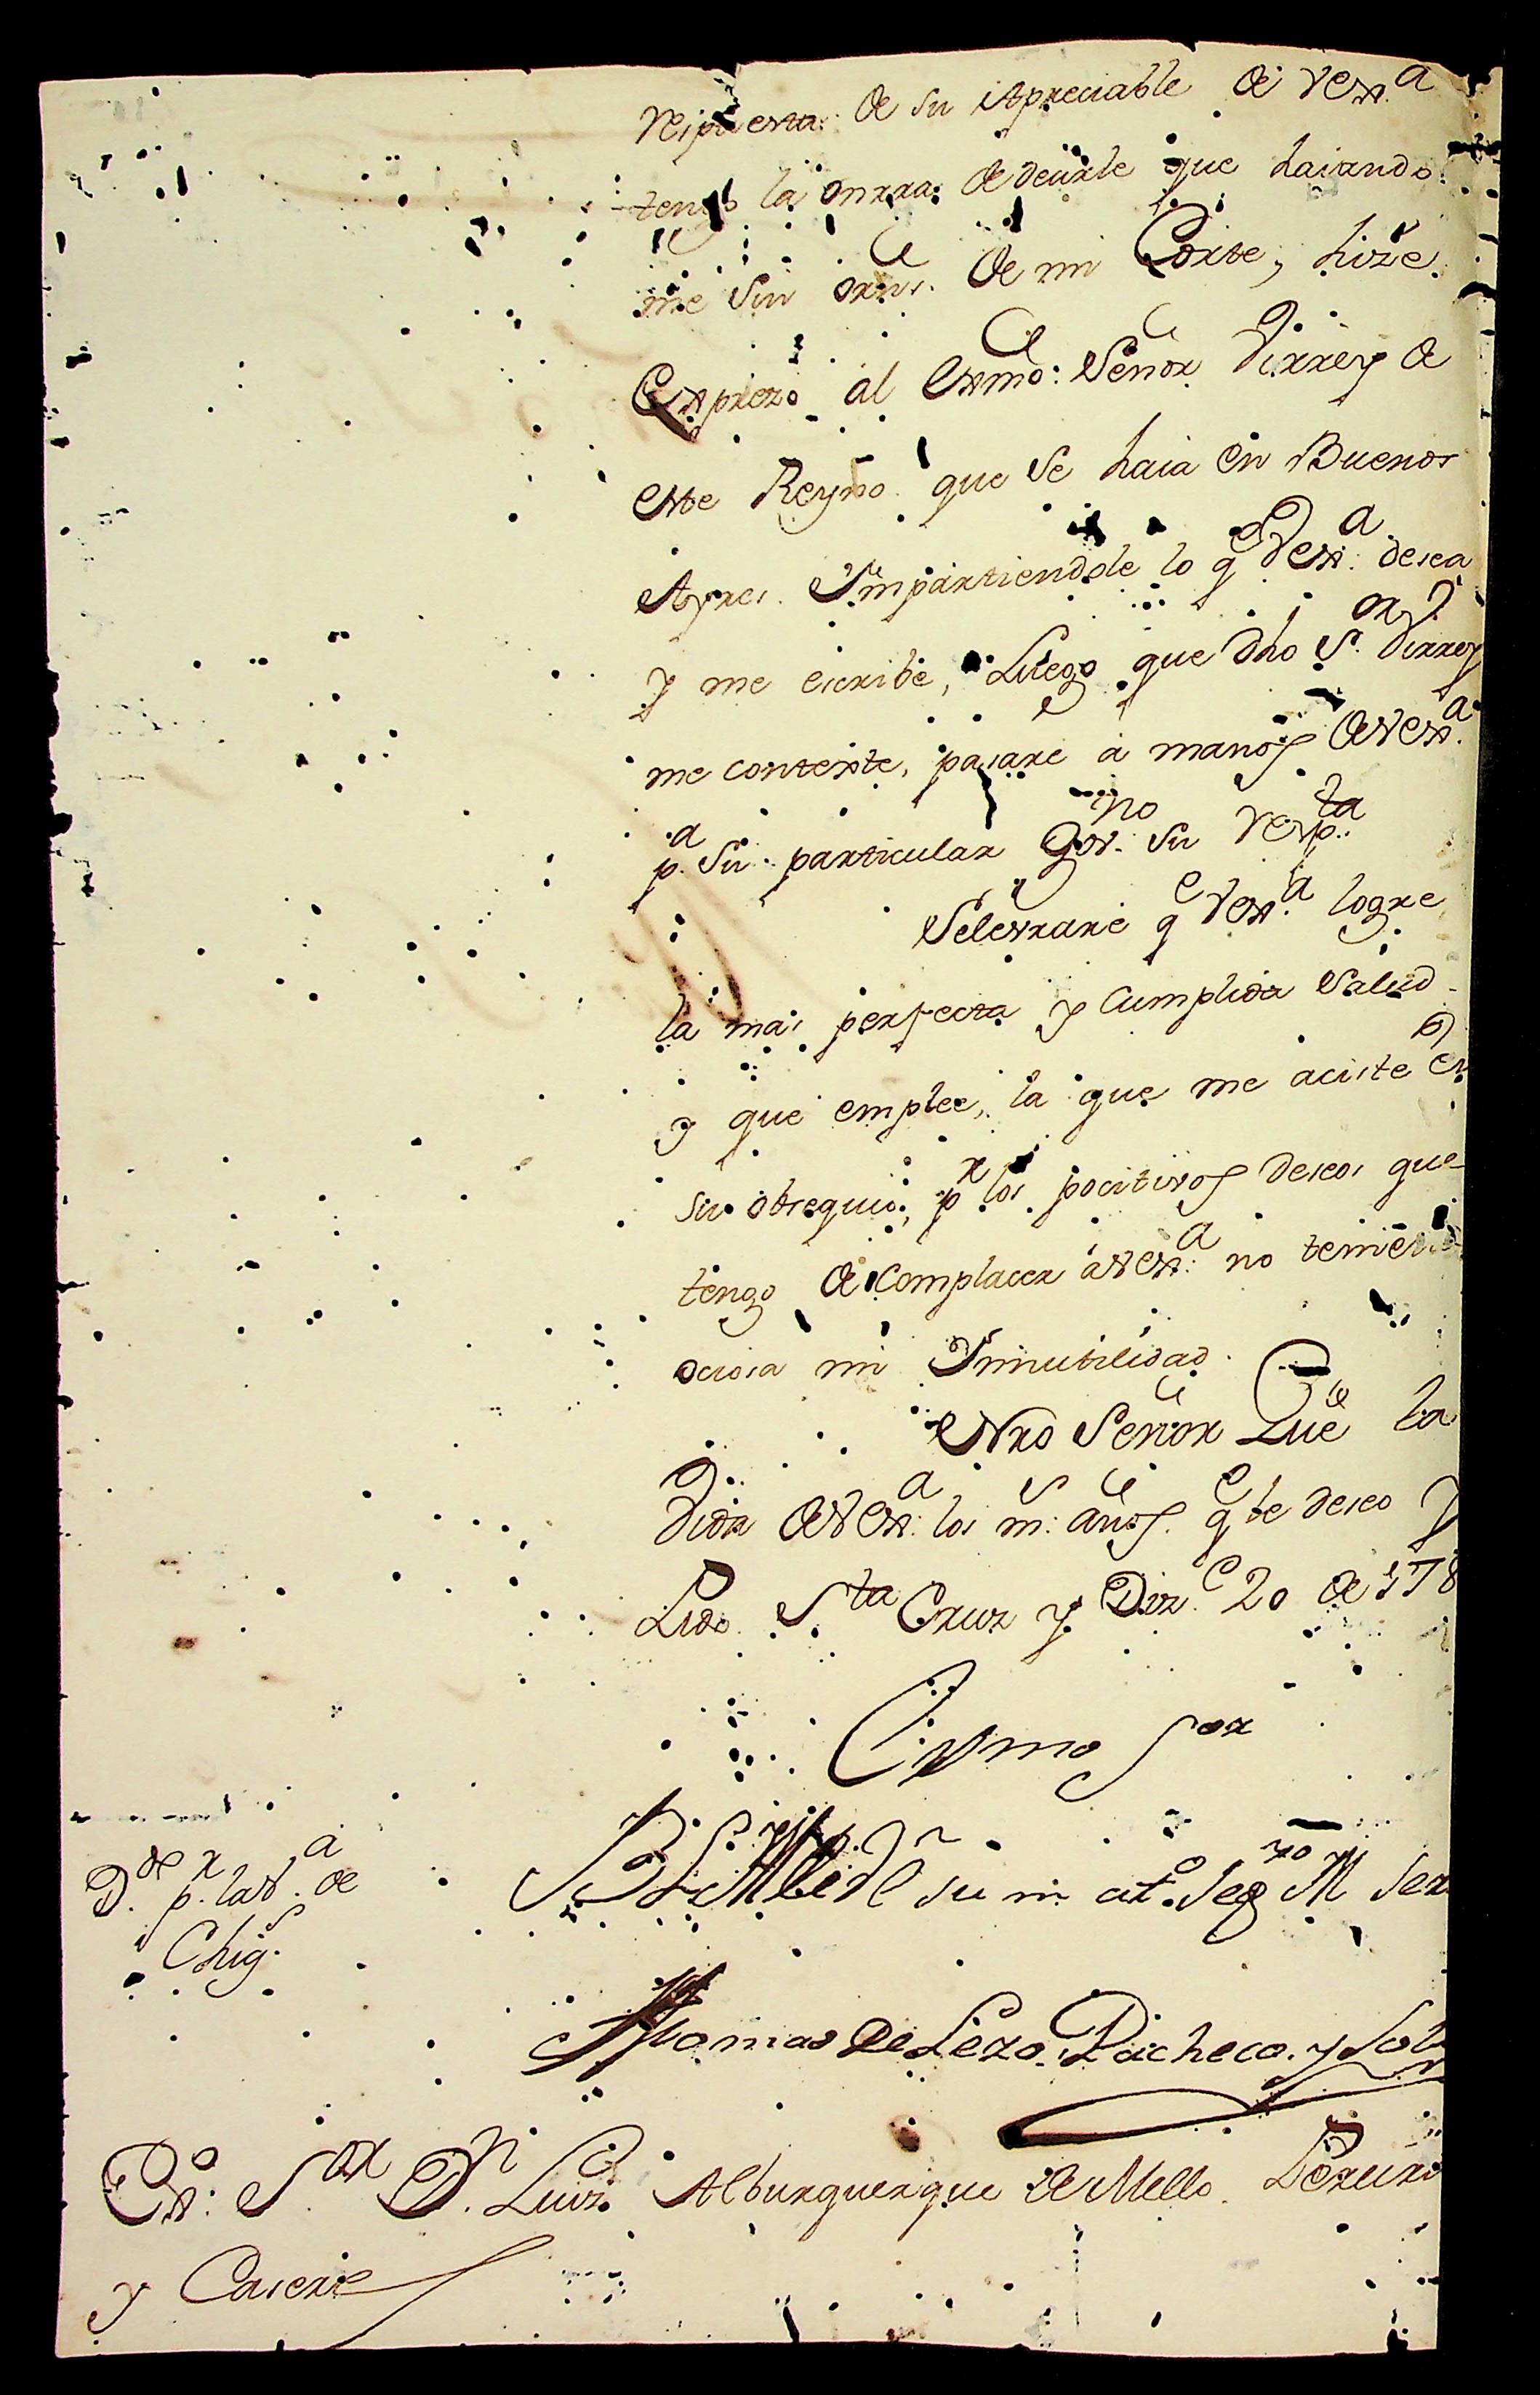 respuesta de su Apreciable de Vex.ª
tengo la onrra de decirle que haiando
me sin orns. de mi Corte, hize
Exprezo al Exmo: Señor Virrey de
este Reyno que se haia en Buenos
Ayres. Impartiendole lo q.e Vex.ª desea
y me escribe, Luego que dho S.or Virrey
me contexte, pasare à manos de Vex.ª
p.ª su particular Gov.no su resp.ta
Selevrare q.e Vex.ª logre
la mas perfecta y Cumplida Salud
y que emplee, la que me aciste en
su obsequio, p.r los pocitivos deseos que
tengo de complacer à Vex.ª no
ociosa mi Innutilidad.
Nro Señor Gue la
Vida de Vex.ª los m.s años. q.e le deseo y
Pido S.ta Cruz y Diz.e 20 de 178
Exmo S.or
su m at.o Seg.ro ser
Thomas de Lezo. Pacheco. y Sol
D.de p.r la V.ª de
Chiq.s
Ex.o S.or D.n Luiz Alburquerque de Mello. Pereira
y Casere